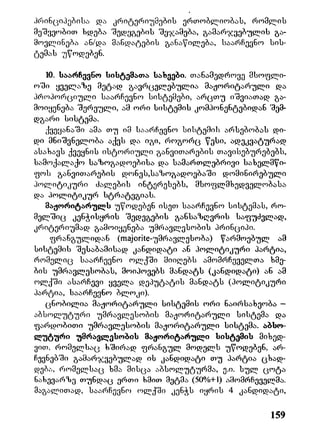 პრინციპებისა და კრიტერიუმების ერთობლიობას, რომლის
მეშვეობით ხდება შედეგების შეჯამება, გამარჯვებულის გა-
მოვლინება ან/და მანდატების განაწილება, საარჩევნო სის-
ტემას უწოდებენ.
10. საარჩევნო სისტემათა სახეები. თანამედროვე მსოფლი-
ოში ყველაზე მეტად გავრცელებულია მაჟორიტარული და
პროპორციული საარჩევნო სისტემები, არცთუ იშვიათად გა-
მოიყენება შერეული, ამ ორი სისტემის კომპონენტებიდან შემ-
დგარი სისტემა.
ქვეყანაში ამა თუ იმ საარჩევნო სისტემის არსებობას დი-
დი მნიშვნელობა აქვს და იგი, როგორც წესი, ადეკვატურად
ასახავს ქვეყნის ისტორიული განვითარების თავისებურებებს,
სამოქალაქო საზოგადოებისა და სამართლებრივი სახელმწი-
ფოს განვითარების დონეს,საზოგადოებაში დომინირებული
პოლიტიკური ძალების ინტერესებს, მსოფლმხედველობასა
და პოლიტიკურ სტრატეგიას.
მაჟორიტარულს უწოდებენ ისეთ საარჩევნო სისტემას, რო-
მელშიც კენჭისყრის შედეგების განსაზღვრის საფუძვლად,
კრიტერიუმად გამოიყენება უმრავლესობის პრინციპი.
ფრანგულიდან (majorite-უმრავლესობა) წარმოებულ ამ
სისტემის შესაბამისად კანდიდატი ან პოლიტიკური პარტია,
რომელიც საარჩევნო ოლქში მიიღებს ამომრჩეველთა ხმე-
ბის უმრავლესობას, მოიპოვებს მანდატს (კანდიდატი) ან ამ
ოლქში ასარჩევი ყველა დეპუტატის მანდატს (პოლიტიკური
პარტია, საარჩევნო ბლოკი).
ცნობილია მაჟორიტარული სისტემის ორი ნაირსახეობა –
აბსოლუტური უმრავლესობის მაჟორიტარული სისტემა და
ფარდობითი უმრავლესობის მაჟორიტარული სისტემა. აბსო-
ლუტური უმრავლესობის მაჟორიტარული სისტემის მიხედ-
ვით, რომელსაც ხშირად ფრანგულ მოდელს უწოდებენ, არ-
ჩევნებში გამარჯვებულად ის კანდიდატი თუ პარტია ცხად-
დება, რომელსაც ხმა მისცა აბსოლუტურმა, ე.ი. სულ ცოტა
ნახევარზე თუნდაც ერთი ხმით მეტმა (50%+1) ამომრჩეველმა.
მაგალითად, საარჩევნო ოლქში კენჭს იყრის 4 კანდიდატი,
159